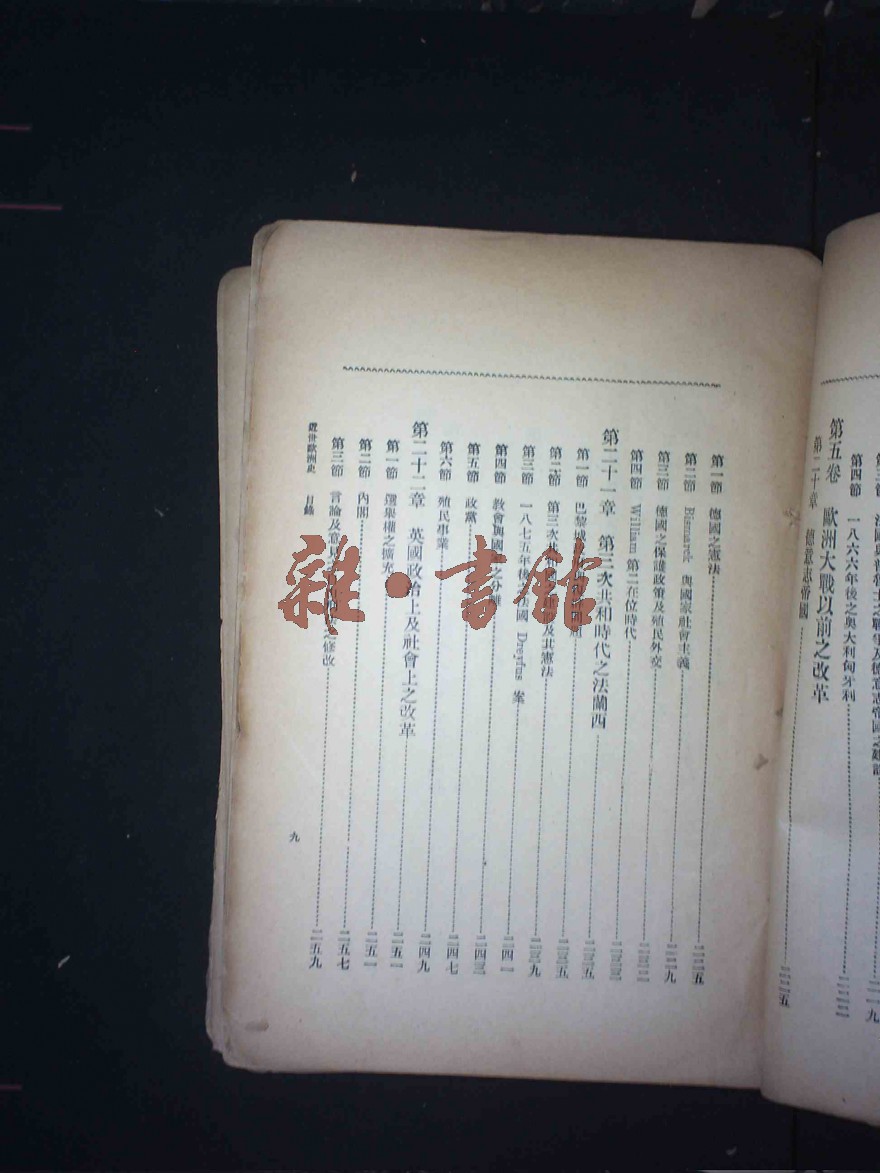 法國與普魯士之戰爭及德意志帝國之建設 九
第四節 一八六六年後之奧大利匈牙利
第五卷 歐洲大戰以前之改革
第二十章 德意志帝國 二二五
第一節 德國之憲法 二二五
第二節 Bismarck 與國家社會主義 二二九
第三節 德國之保護政策及殖民外交
第四節 William 第二在位時代
第二十一章 第三次共和時代之法蘭西
第一節 巴黎
第二節 第三次共 及其憲法 二三五
第三節 一八七五年後 法國 Dreyfus 案 二三九
第四節 教會與國 之分離 二四一
第五節 政黨 二四三
第六節 殖民事業 二四七
第二十二章 英國政治上及社會上之改革 二四九
第一節 選舉權之擴充 二五一
第二節 內閣 二五七
第三節 言論及意見 之修改 二五九
近世歐洲史 目錄
九
雜·書館